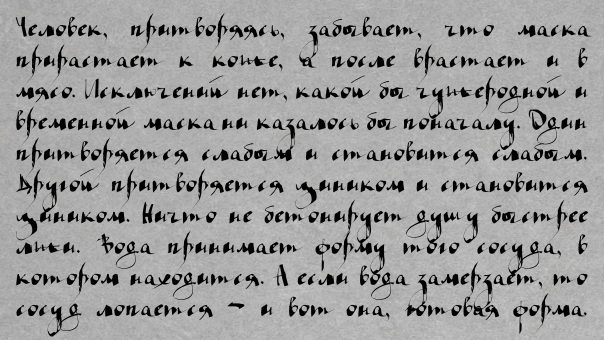 Человек, притворяясь, забывает, что маска
прирастает к коже, а после врастает и в
мясо. Исключений нет, какой бы чужеродной и
временной маска ни казалось бы поначалу. Один
притворяется слабым и становится слабым.
Другой притворяется циником и становится
циником. Ничто не бетонирует душу быстрее
лжи. Вода принимает форму того сосуда, в
котором находится. А если вода замерзает, то
сосуд лопается – и вот она, готовая форма.